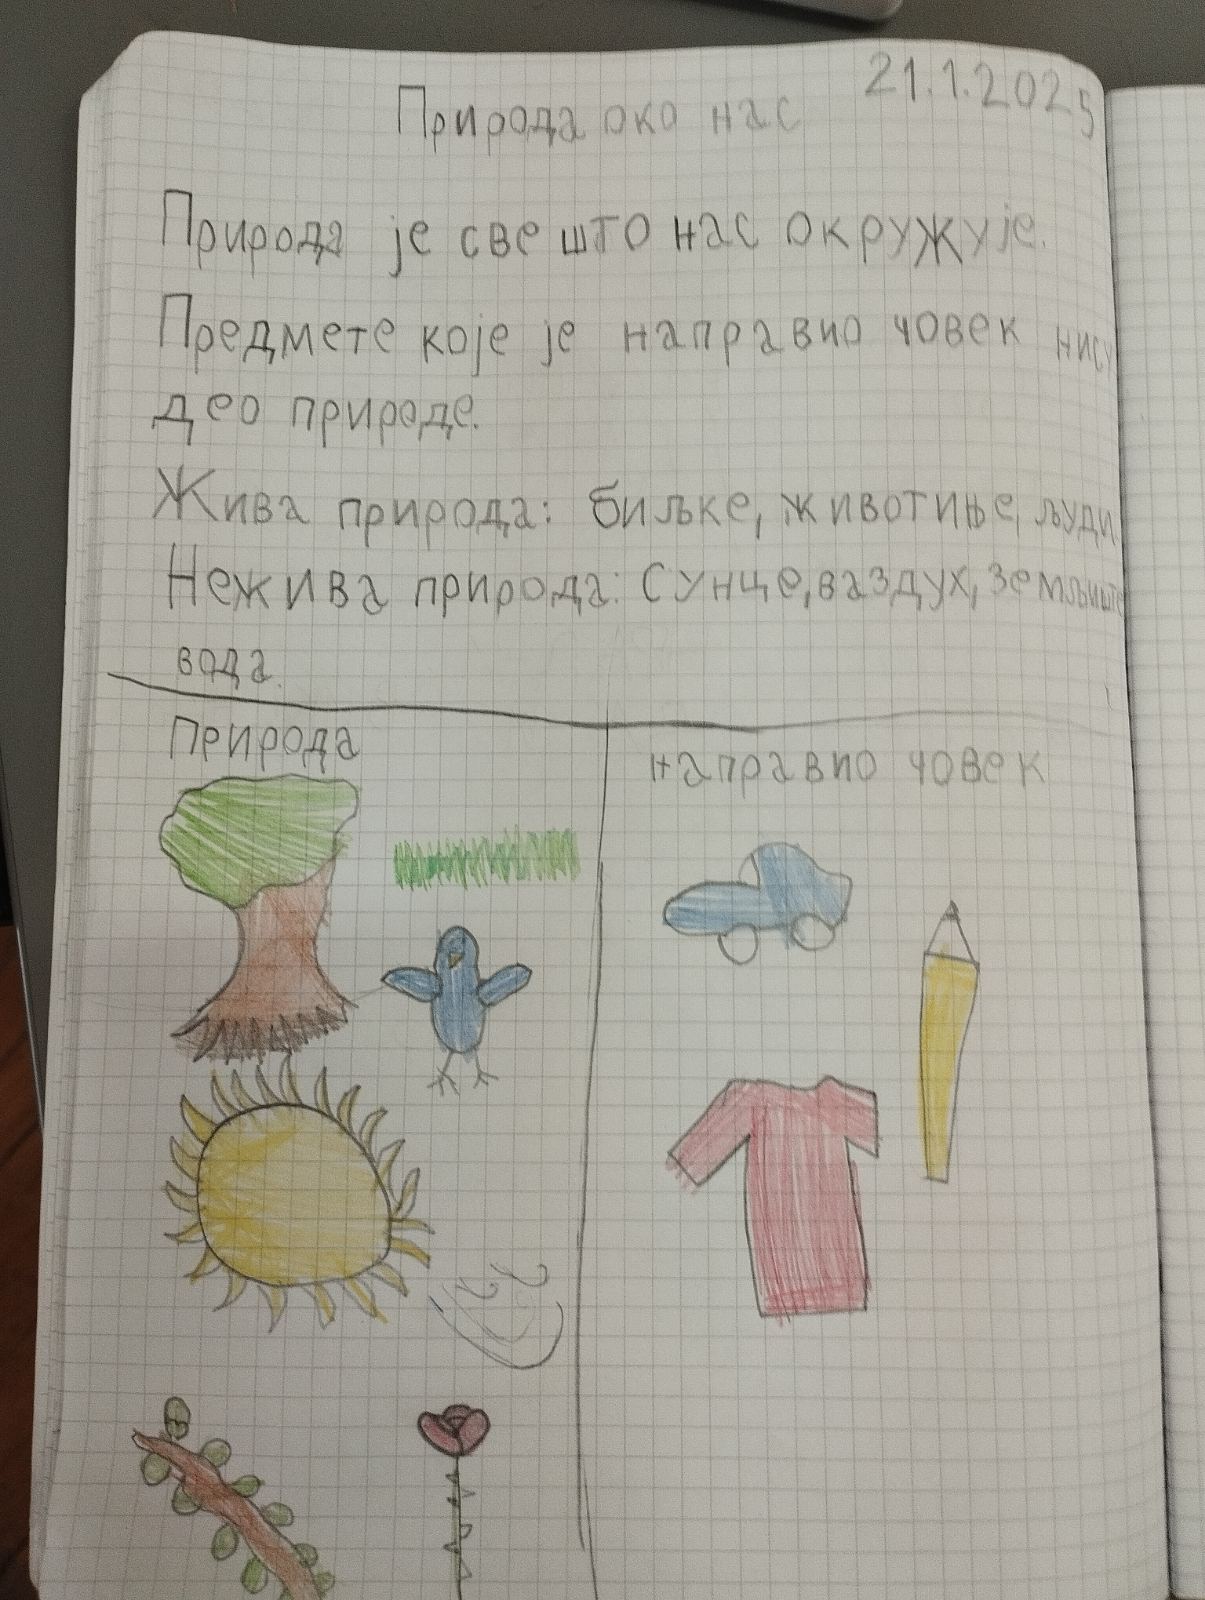 21.1.2025
Природа око нас
Природа је све што нас окружује.
Предмете које је направио човек нису
део природе.
Жива природа: биљке, животиње, људи.
Нежива природа: Сунце, ваздух, земљиште
вода.
Природа
направио човек